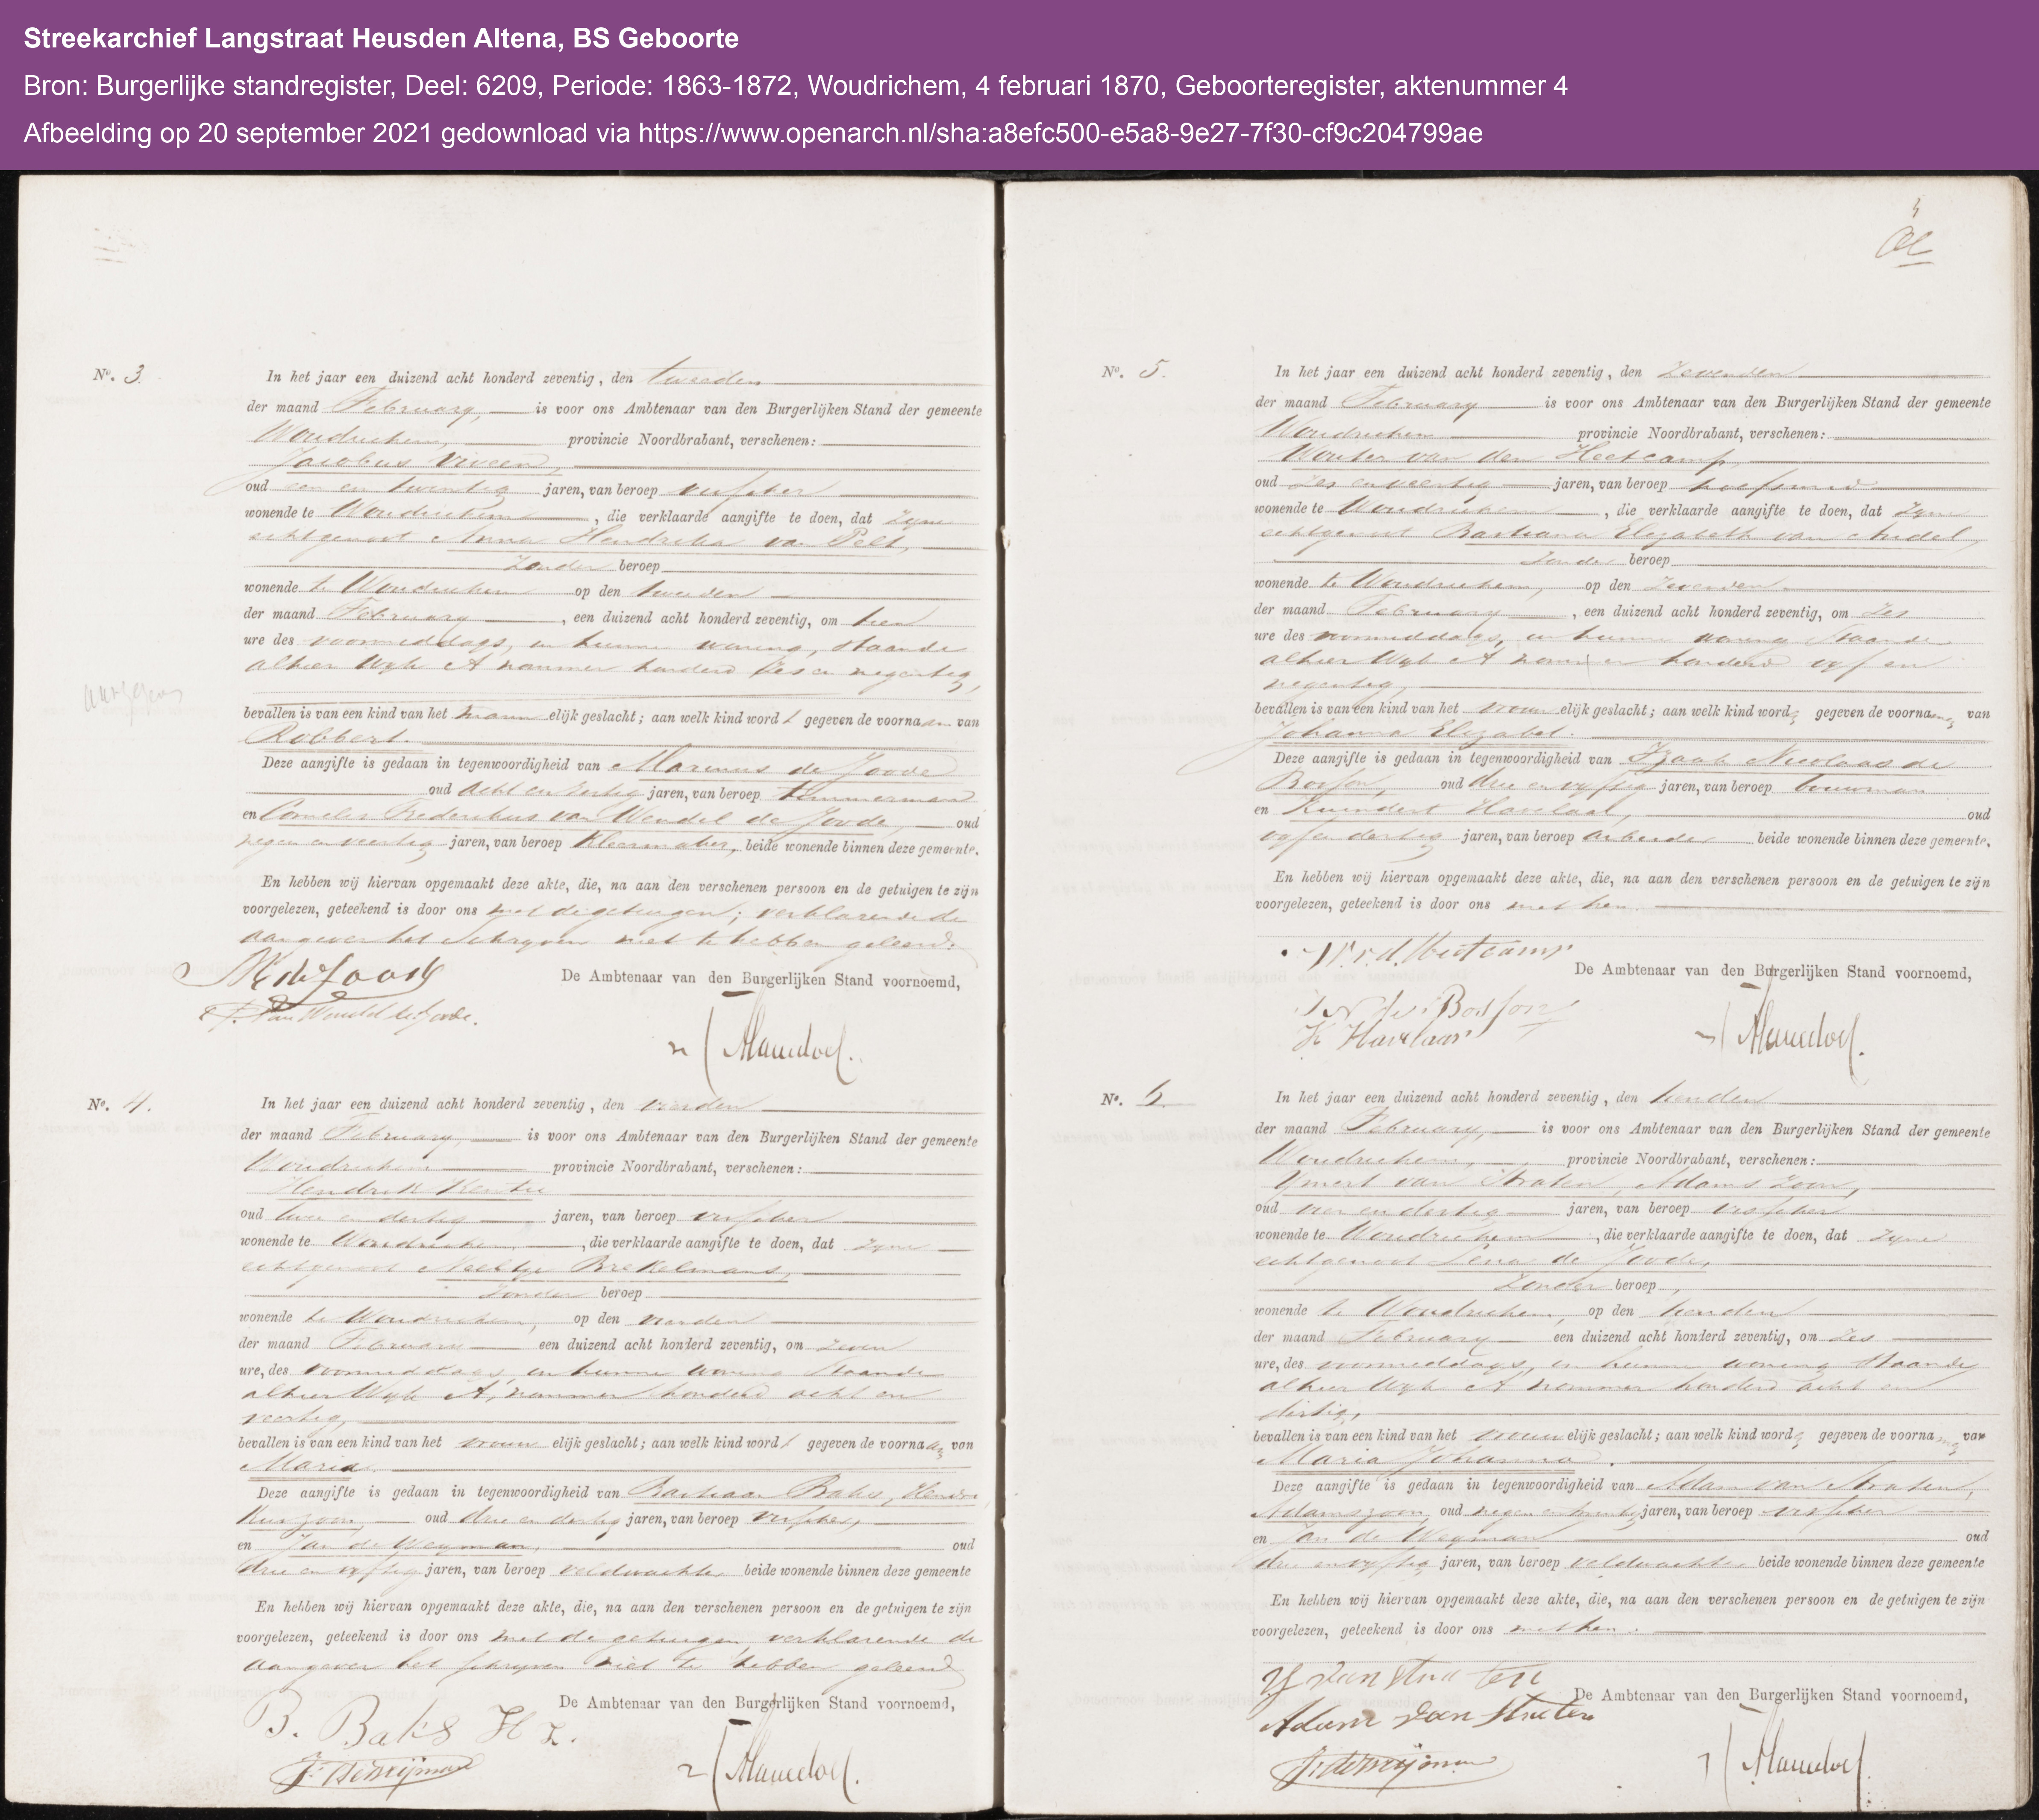 Streekarchief Langstraat Heusden Altena, BS Geboorte
Bron: Burgerlijke standregister, Deel: 6209, Periode: 1863-1872, Woudrichem, 4 februari 1870, Geboorteregister, aktenummer 4
Afbeelding op 20 september 2021 gedownload via https://www.openarch.nl/sha:a8efc500-e5a8-9e27-7f30-cf9c204799ae
No. 3.
In het jaar een duizend acht honderd zeventig, den tweeden
der maand February, is voor ons Ambtenaar van den Burgerlijken Stand der gemeente
Woudrichem, provincie Noordbrabant, verschenen:
Jacobus Viveen,
oud een en twintig jaren, van beroep visscher
wonende te Woudrichem, die verklaarde aangifte te doen, dat zyne
echtgenoot Anna Hendrika van Pelt,
zonder beroep
wonende te Woudrichem op den tweeden
der maand February, een duizend acht honderd zeventig, om tien
ure des voormiddags, in hunne woning, staande
alhier Wyk A nommer honderd zes en negentig,
bevallen is van een kind van het mannelijk geslacht; aan welk kind wordt gegeven de voornaam van
Robbert.
Deze aangifte is gedaan in tegenwoordigheid van Marinus de Joode
oud acht en dertig jaren, van beroep timmerman
en Cornelis Frederikus van Wendel de Joode, oud
negen en veertig jaren, van beroep kleermaker, beide wonende binnen deze gemeente.
En hebben wij hiervan opgemaakt deze akte, die, na aan den verschenen persoon en de getuigen te zijn
voorgelezen, geteekend is door ons met de getuigen; verklarende de
aangever het schryven niet te hebben geleerd.
M de Joode
De Ambtenaar van den Burgerlijken Stand voornoemd,
van Wendel de Joode.
No. 4.
In het jaar een duizend acht honderd zeventig, den vierden
der maand February, is voor ons Ambtenaar van den Burgerlijken Stand der gemeente
Woudrichem provincie Noordbrabant, verschenen:
Hendrik Kentie
oud twee en dertig jaren, van beroep visscher
wonende te Woudrichem, die verklaarde aangifte te doen, dat zyne
echtgenoot Neeltje Brekelmans,
zonder beroep
wonende te Woudrichem, op den vierden
der maand February een duizend acht honderd zeventig, om zeven
ure, des voormiddags, in hunne woning staande
alhier Wyk A, nommer honderd acht en
veertig,
bevallen is van een kind van het vrouwelijk geslacht; aan welk kind wordt gegeven de voornaam van
Maria
Deze aangifte is gedaan in tegenwoordigheid van Bastiaan Baks, Hendri
kuszoon, oud drie en dertig jaren, van beroep visscher,
en Jan de Weyman, oud
drie en vyftig jaren, van beroep veldwachter beide wonende binnen deze gemeente
En hebben wij hiervan opgemaakt deze akte, die, na aan den verschenen persoon en de getuigen te zijn
voorgelezen, geteekend is door ons met de getuigen, verklarende de
aangever het schryven niet te hebben geleerd
B. Baks H Z.
De Ambtenaar van den Burgerlijken Stand voornoemd,
J: de Weijman
4
No. 5.
In het jaar een duizend acht honderd zeventig, den zevenden
der maand February is voor ons Ambtenaar van den Burgerlijken Stand der gemeente
Woudrichem provincie Noordbrabant, verschenen:
Wouter van den Heetcamp,
oud zes en veertig jaren, van beroep hoefsmid
wonende te Woudrichem, die verklaarde aangifte te doen, dat zyne
echtgenoot Bastiana Elizabeth van Andel,
zonder beroep
wonende te Woudrichem, op den zevenden
der maand February, een duizend acht honderd zeventig, om zes
ure des voormiddags, in hunne woning staande
alhier Wyk A nommer honderd vyf en
negentig,
bevallen is van een kind van het vrouwelijk geslacht; aan welk kind word gegeven de voornamen van
Johanna Elizabet.
Deze aangifte is gedaan in tegenwoordigheid van Izaak Nicolaas de
Bosson, oud drie en vyftig jaren, van beroep bouwman
en Kundert Havelaar, oud
vyf en dertig jaren, van beroep arbeider beide wonende binnen deze gemeente.
En hebben wij hiervan opgemaakt deze akte, die, na aan den verschenen persoon en de getuigen te zijn
voorgelezen, geteekend is door ons met hen.
W. v. d. Heetcamp
De Ambtenaar van den Burgerlijken Stand voornoemd,
I N de Bosson
K Havelaar
No. 6.
In het jaar een duizend acht honderd zeventig, den tienden
der maand February, is voor ons Ambtenaar van den Burgerlijken Stand der gemeente
Woudrichem, provincie Noordbrabant, verschenen:
Ymert van Straten, Adams zoon,
oud vier en dertig jaren, van beroep visscher
wonende te Woudrichem, die verklaarde aangifte te doen, dat zyne
echtgenoot Lena de Joode,
zonder beroep,
wonende te Woudrichem, op den tienden
der maand February een duizend acht honderd zeventig, om zes
ure, des voormiddags, in hunne woning staande
alhier Wyk A nommer honderd acht en
dertig,
bevallen is van een kind van het vrouwelijk geslacht; aan welk kind word gegeven de voornamen van
Maria Johanna.
Deze aangifte is gedaan in tegenwoordigheid van Adam van Straten,
Adamszoon, oud negen en twintig jaren, van beroep visscher
en Jan de Weyman oud
drie en vyftig jaren, van beroep veldwachter beide wonende binnen deze gemeente
En hebben wij hiervan opgemaakt deze akte, die, na aan den verschenen persoon en de getuigen te zijn
voorgelezen, geteekend is door ons met hen.
Y van Straten
De Ambtenaar van den Burgerlijken Stand voornoemd,
Adam van Straten
J: de Weijman